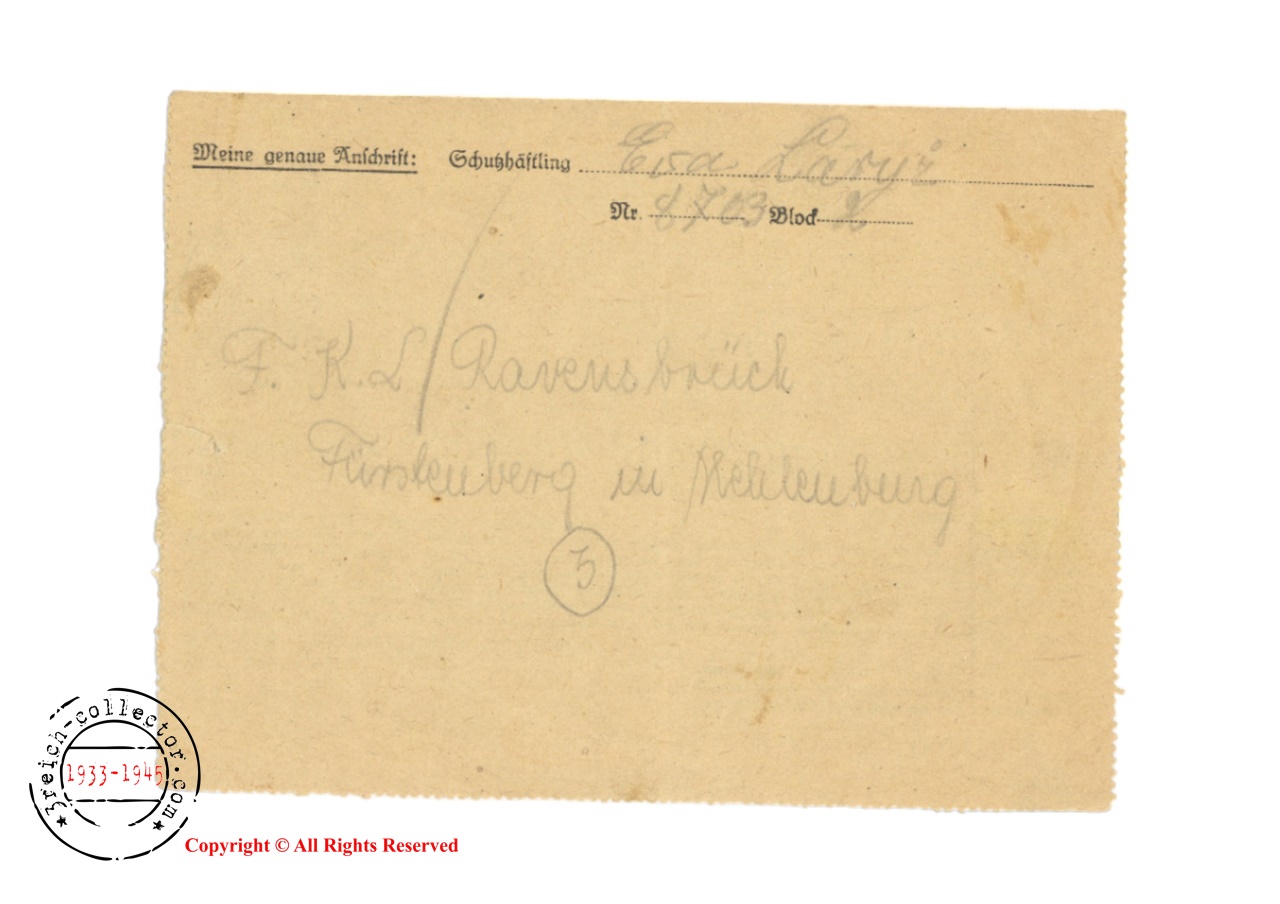 Meine genaue Anschrift: Schutzhäftling Eva
Nr. 8703 Block 2
F. K. L / Ravensbrück
Fürstenberg in Meklenburg
3reich-collector.com
1933-1945
Copyright © All Rights Reserved